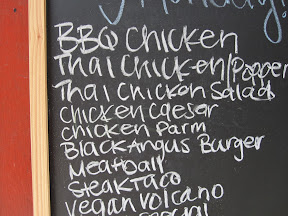 Monday!
BBQ Chicken
Thai Chicken/Pepper
Thai Chicken Salad
Chicken Caesar
Chicken Parm
Black Angus Burger
Meatball
Steak Taco
Vegan Volcano